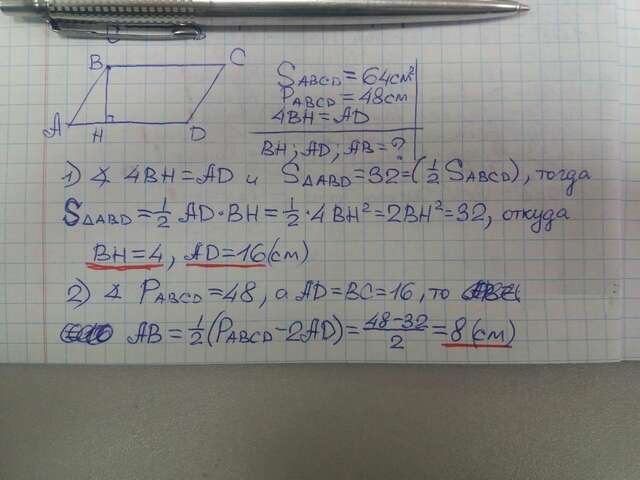 B C
A H D
S ABCD = 64см²
P ABCD = 48см
4BH = AD
BH; AD; AB = ?
1) ∢ 4BH = AD и S ΔABD = 32 = (1/2 S ABCD), тогда
S ΔABD = 1/2 AD · BH = 1/2 · 4BH² = 2BH² = 32, откуда
BH = 4, AD = 16 (см)
2) ∢ P ABCD = 48, а AD = BC = 16, то
AB = 1/2 (P ABCD - 2AD) = 48-32/2 = 8 (см)